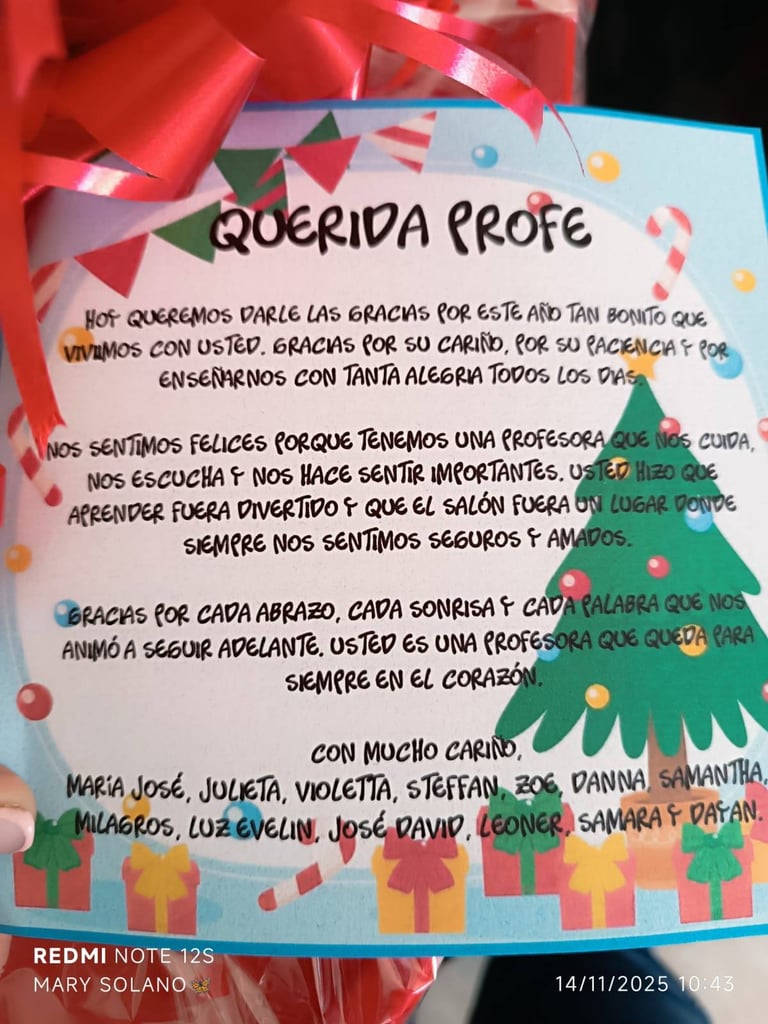 QUERIDA PROFE
HOY QUEREMOS DARLE LAS GRACIAS POR ESTE AÑO TAN BONITO QUE
VIVIMOS CON USTED. GRACIAS POR SU CARIÑO, POR SU PACIENCIA Y POR
ENSEÑARNOS CON TANTA ALEGRIA TODOS LOS DIAS.
NOS SENTIMOS FELICES PORQUE TENEMOS UNA PROFESORA QUE NOS CUIDA,
NOS ESCUCHA Y NOS HACE SENTIR IMPORTANTES. USTED HIZO QUE
APRENDER FUERA DIVERTIDO Y QUE EL SALÓN FUERA UN LUGAR DONDE
SIEMPRE NOS SENTIMOS SEGUROS Y AMADOS.
GRACIAS POR CADA ABRAZO, CADA SONRISA Y CADA PALABRA QUE NOS
ANIMÓ A SEGUIR ADELANTE. USTED ES UNA PROFESORA QUE QUEDA PARA
SIEMPRE EN EL CORAZÓN.
CON MUCHO CARIÑO,
MARÍA JOSÉ, JULIETA, VIOLETTA, STEFFAN, ZOE, DANNA, SAMANTHA,
MILAGROS, LUZ EVELIN, JOSÉ DAVID, LEONER, SAMARA Y DAYAN.
REDMI NOTE 12S
MARY SOLANO
14/11/2025 10:43